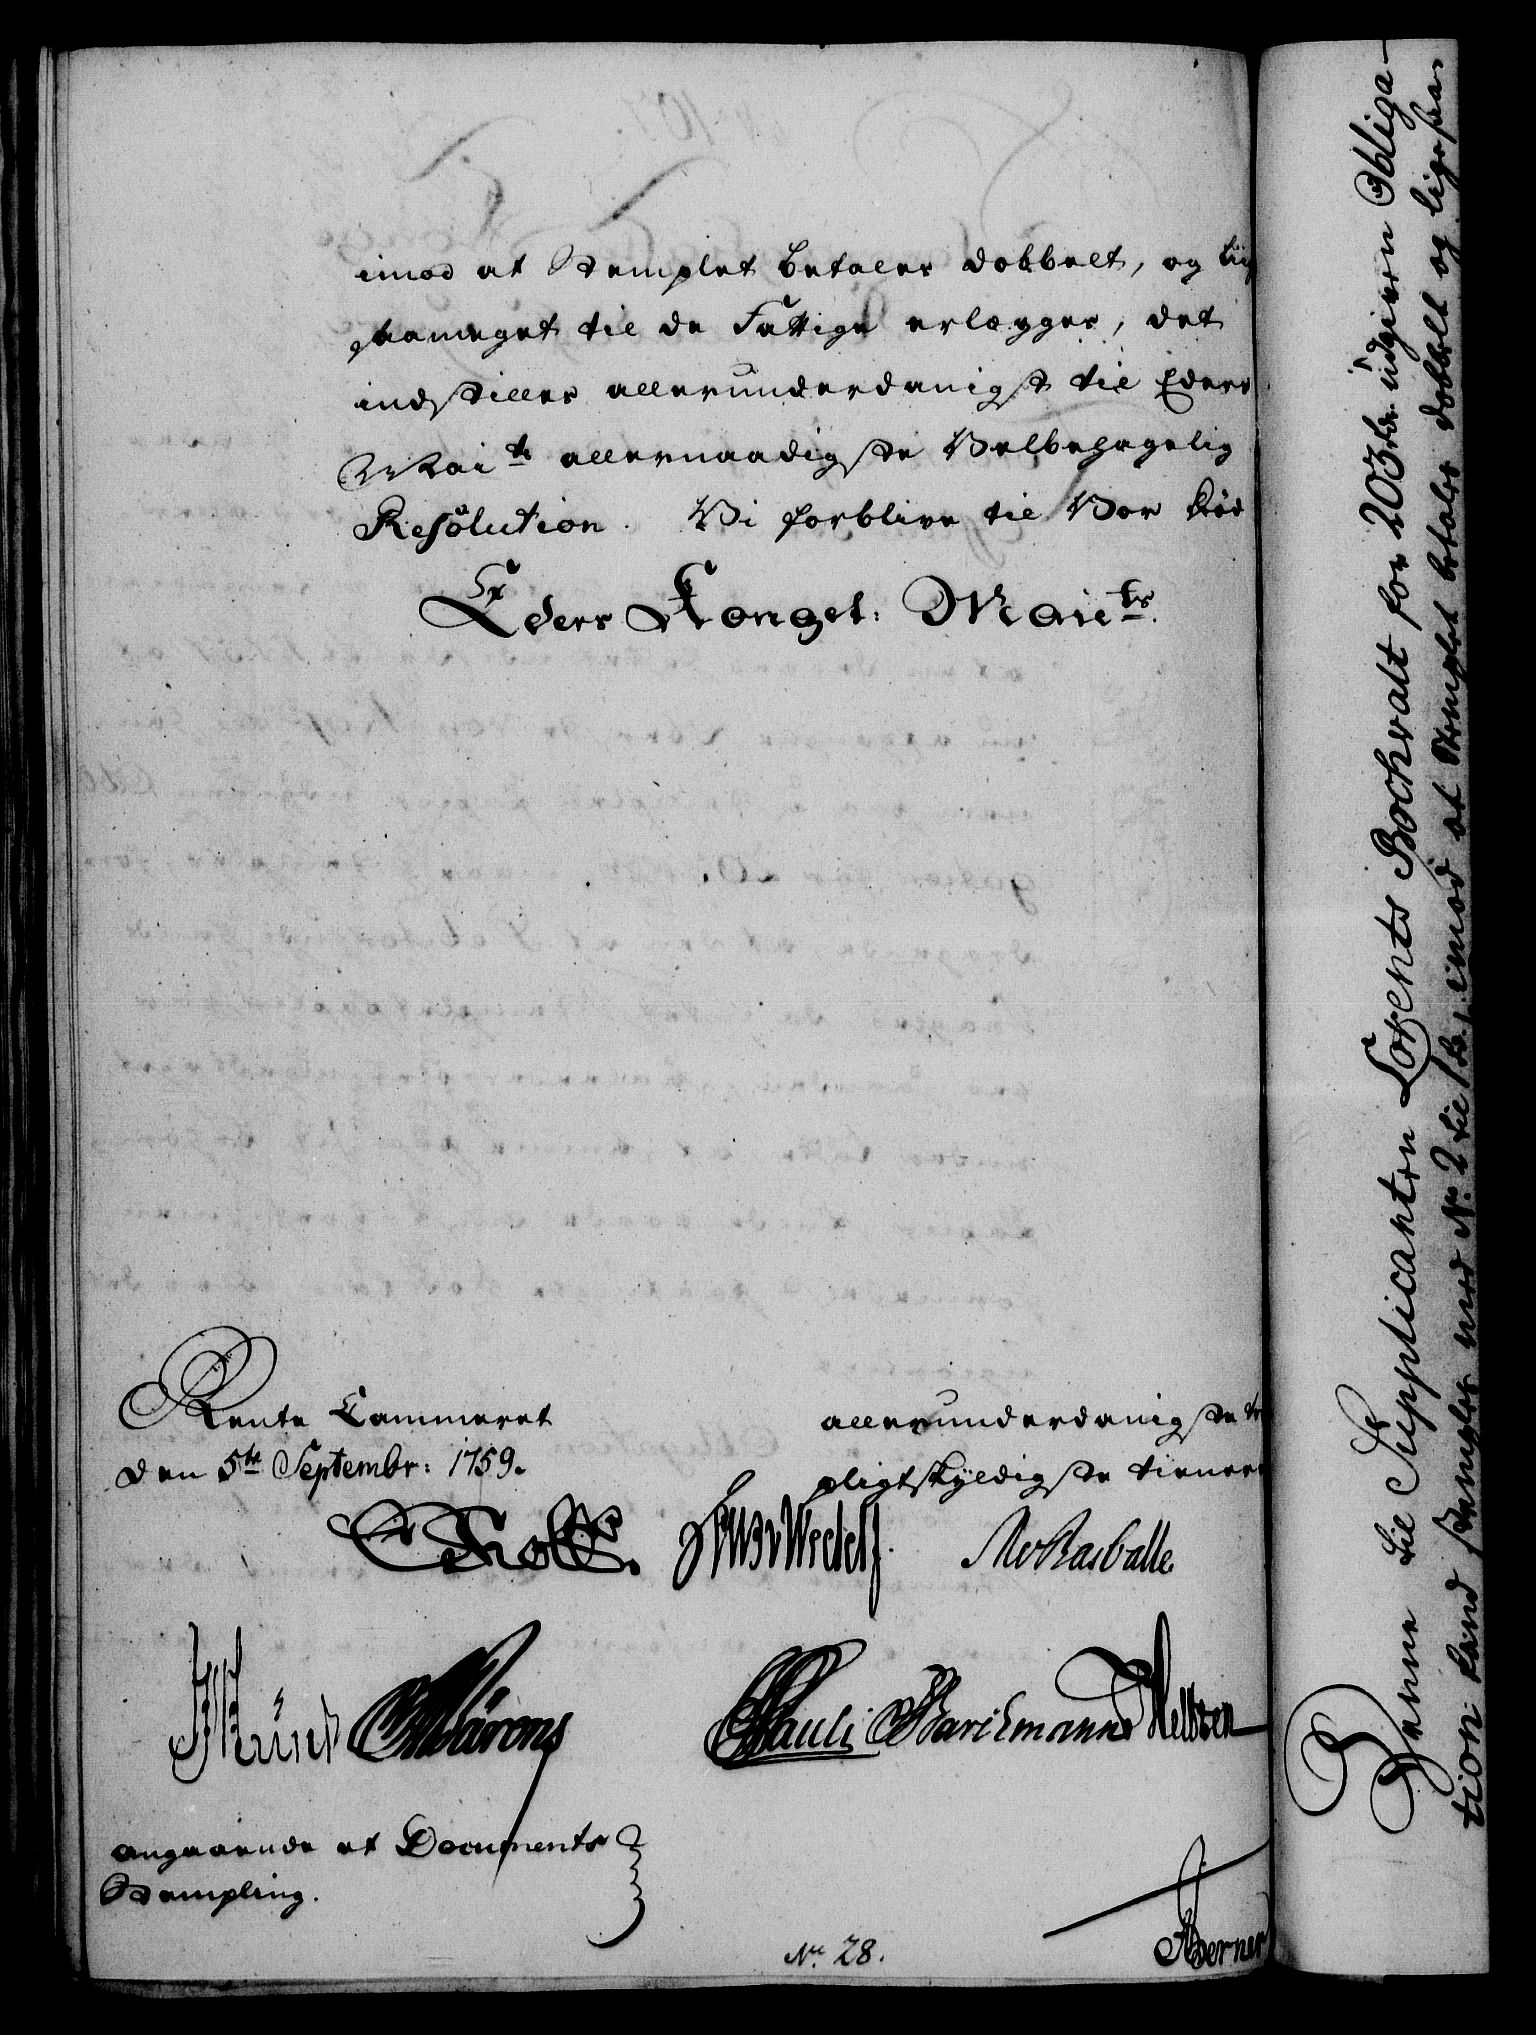 imod at Stemplet betales dobbelt, og liig
saameget til de Fattige erlægges, det
indstilles allerunderdanigst til Eders
Mai.ts allernaadigste Velbehagelig
Resolution. Vi forblive til Vor Død
Eders Kongel: Mai.ts
Rente Cammeret
den 5te Septembr: 1759.
allerunderdanigste
pligtskyldigste tienere
Holst.
Wedell
Rasballe
Münch
Pauli
Barchmann
angaaende et Documents
Stempling.
No. 28.
Berner
Denne til Supplicanten Lorents Bochvalt for 203 rd. udgiven Obliga-
tion kand stemples med No. 2 til, imod at Stemplet betales dobbelt og ligesaa